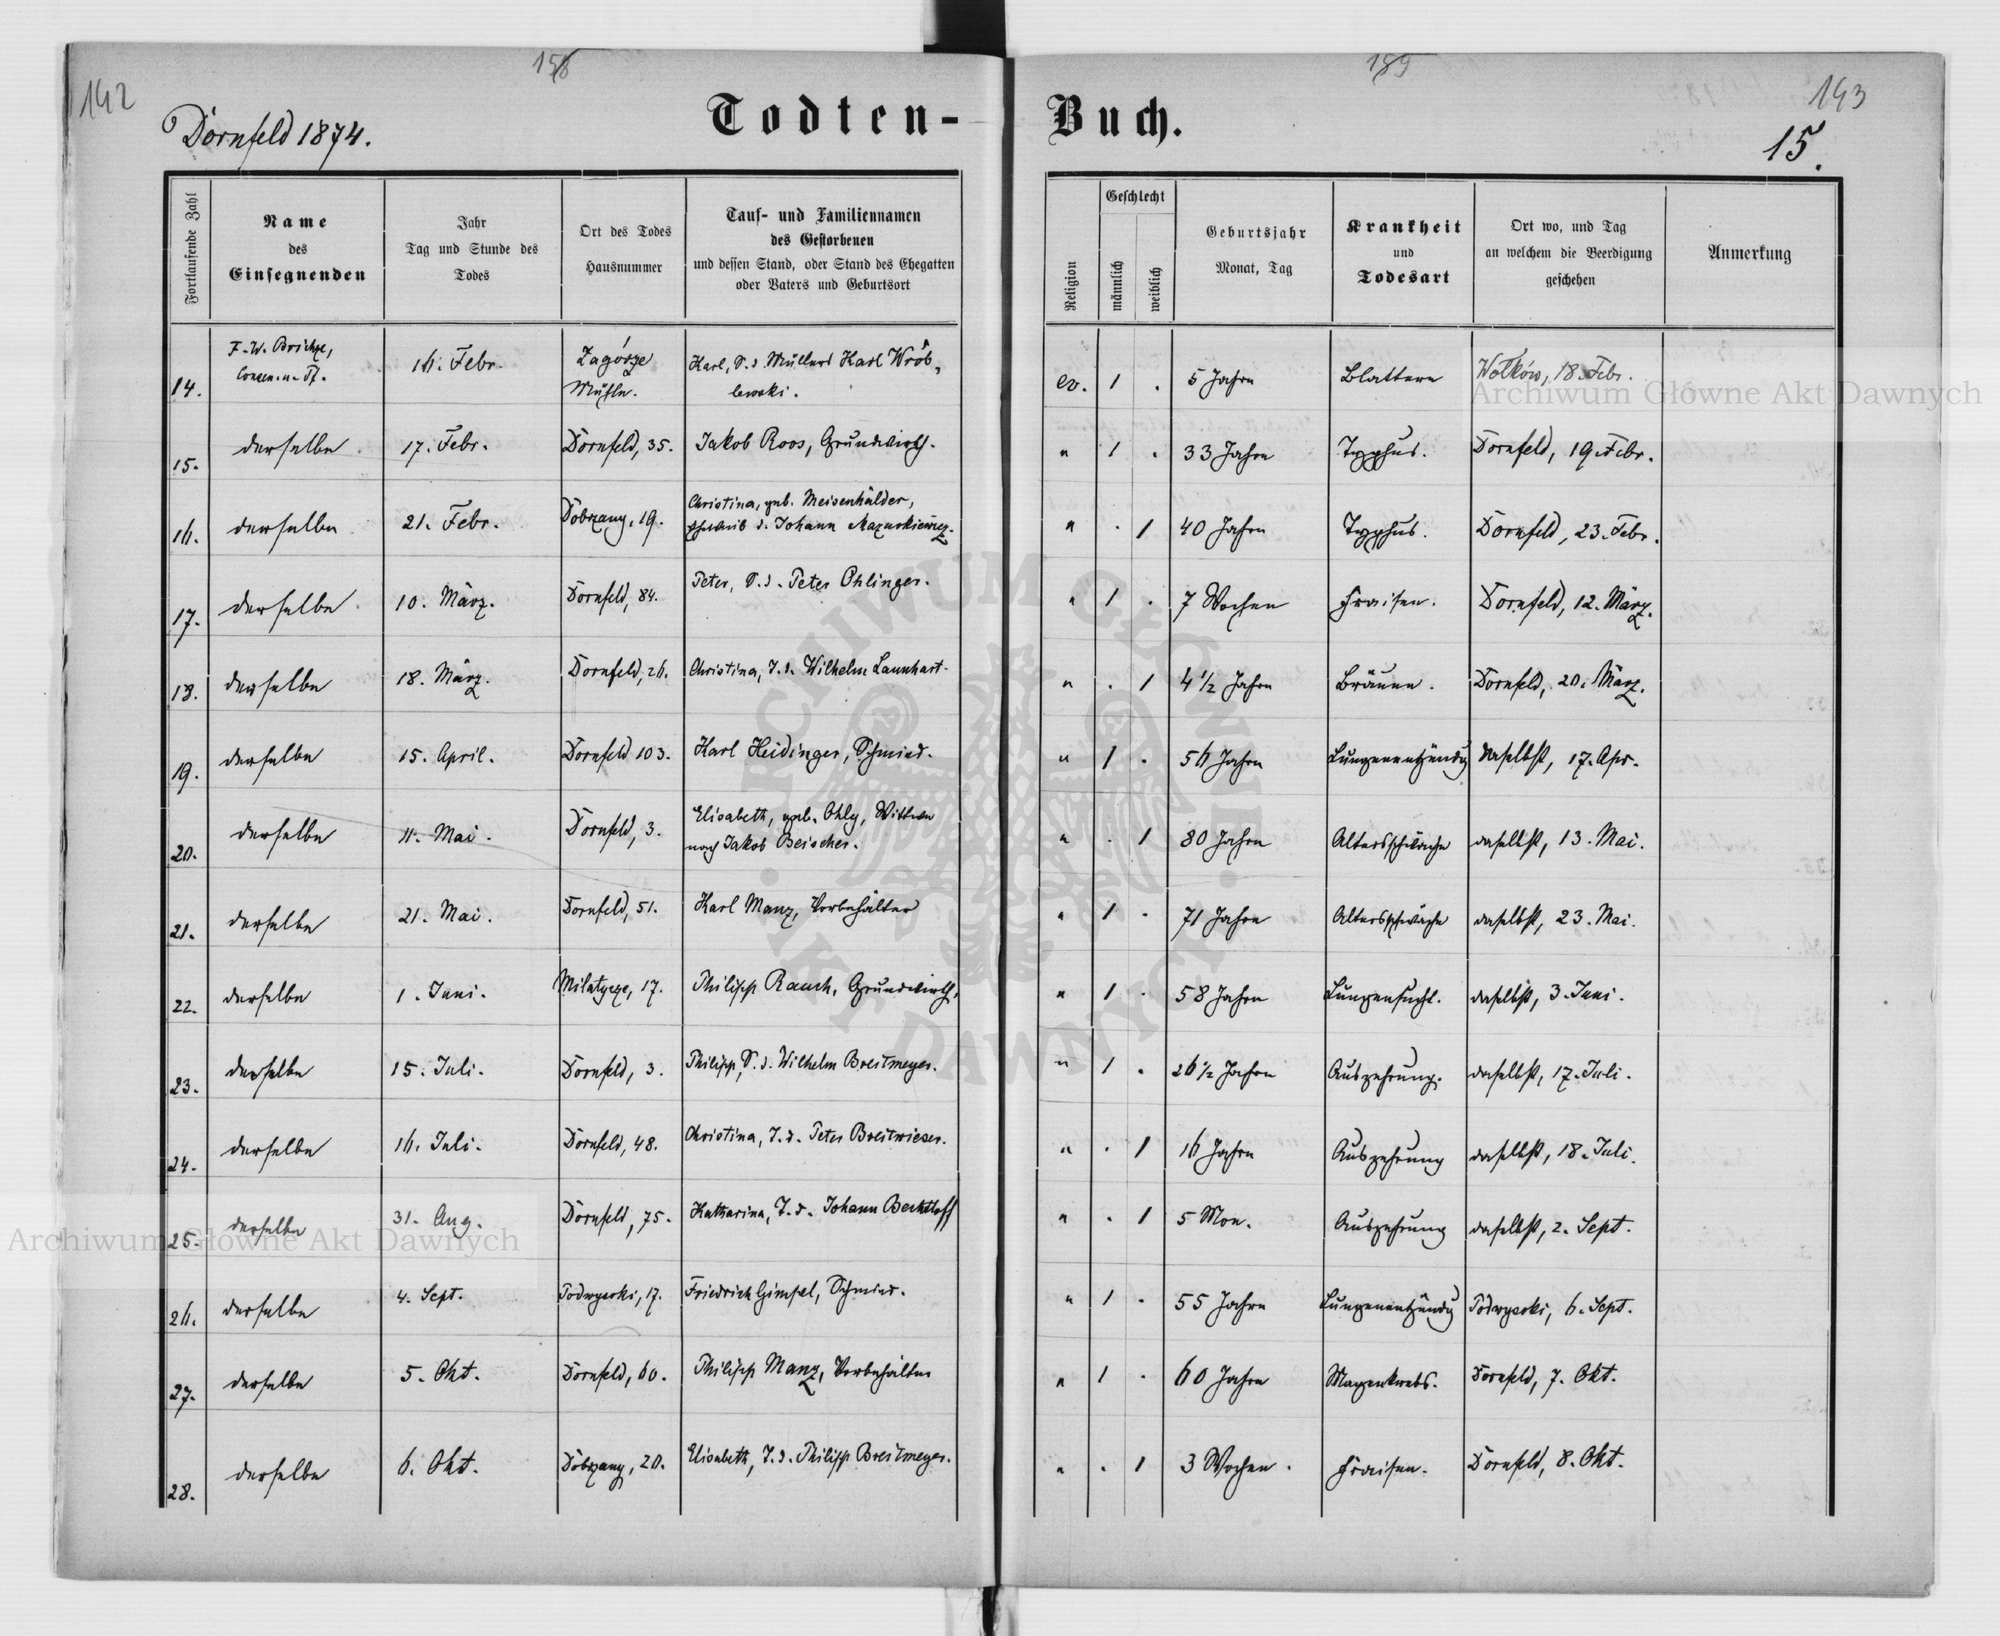 142
158
159
143
Dornfeld 1874.
Todten-
Buch.
15.
Fortlaufende Zahl
Name
des
Einsegnenden
Jahr
Tag und Stunde des
Todes
Ort des Todes
Hausnummer
Tauf- und Familiennamen
des Gestorbenen
und dessen Stand, oder Stand des Ehegatten
oder Vaters und Geburtsort
Religion
Geschlecht
männlich
weiblich
Geburtsjahr
Monat, Tag
Krankheit
und
Todesart
Ort wo, und Tag
an welchem die Beerdigung
geschehen
Anmerkung
14. F. W. 16. Febr. Zagórze Karl, S. d. Müllers Karl Wrób- ev. 1 . 5 Jahre Blattern Wolków, 18. Febr.
Mühle. lewski.
15. derselbe 17. Febr. Dornfeld, 35. Jakob Roos, Grundwirth. " 1 . 33 Jahre Typhus. Dornfeld, 19. Febr.
16. derselbe 21. Febr. Dobrzany, 19. Christina, geb. Meisenhälder, " . 1 40 Jahre Typhus. Dornfeld, 23. Febr.
Eheweib d. Johann Mazurkiewicz.
17. derselbe 10. März. Dornfeld, 84. Peter, S. d. Peter Ohlinger. " 1 . 7 Wochen Fraisen. Dornfeld, 12. März.
18. derselbe 18. März. Dornfeld, 26. Christina, T. d. Wilhelm Launhart. " . 1 4 1/2 Jahre Bräune. Dornfeld, 20. März.
19. derselbe 15. April. Dornfeld 103. Karl Heidinger, Schmied. " 1 . 56 Jahre Lungenentzündg daselbst, 17. Apr.
20. derselbe 11. Mai. Dornfeld, 3. Elisabeth, geb. Ohly, Wittwe " . 1 80 Jahre Altersschwäche daselbst, 13. Mai.
nach Jakob Beischer.
21. derselbe 21. Mai. Dornfeld, 51. Karl Manz, Vorbehälter " 1 . 71 Jahre Altersschwäche daselbst, 23. Mai.
22. derselbe 1. Juni. Milatycze, 17. Philipp Rauch, Grundwirth, " 1 . 58 Jahre Lungensucht. daselbst, 3. Juni.
23. derselbe 15. Juli. Dornfeld, 3. Philipp, S. d. Wilhelm Breitmeyer. " 1 . 26 1/2 Jahre Auszehrung. daselbst, 17. Juli.
24. derselbe 16. Juli. Dornfeld, 48. Christina, T. d. Peter Breitwieser. " . 1 16 Jahre Auszehrung daselbst, 18. Juli.
25. derselbe 31. Aug. Dornfeld, 75. Katharina, T. d. Johann Bechtloff " . 1 5 Mon. Auszehrung daselbst, 2. Sept.
26. derselbe 4. Sept. Podwysoki, 17. Friedrich Gimpel, Schmied. " 1 . 55 Jahre Lungenentzündg Podwysoki, 6. Sept.
27. derselbe 5. Okt. Dornfeld, 60. Philipp Manz, Vorbehälter " 1 . 60 Jahre Magenkrebs. Dornfeld, 7. Okt.
28. derselbe 6. Okt. Dobrzany, 20. Elisabeth, T. d. Philipp Breitmeyer. " . 1 3 Wochen. Fraisen. Dornfeld, 8. Okt.
Archiwum Główne Akt Dawnych
Archiwum Główne Akt Dawnych
ARCHIWUM GŁÓWNE AKT DAWNYCH